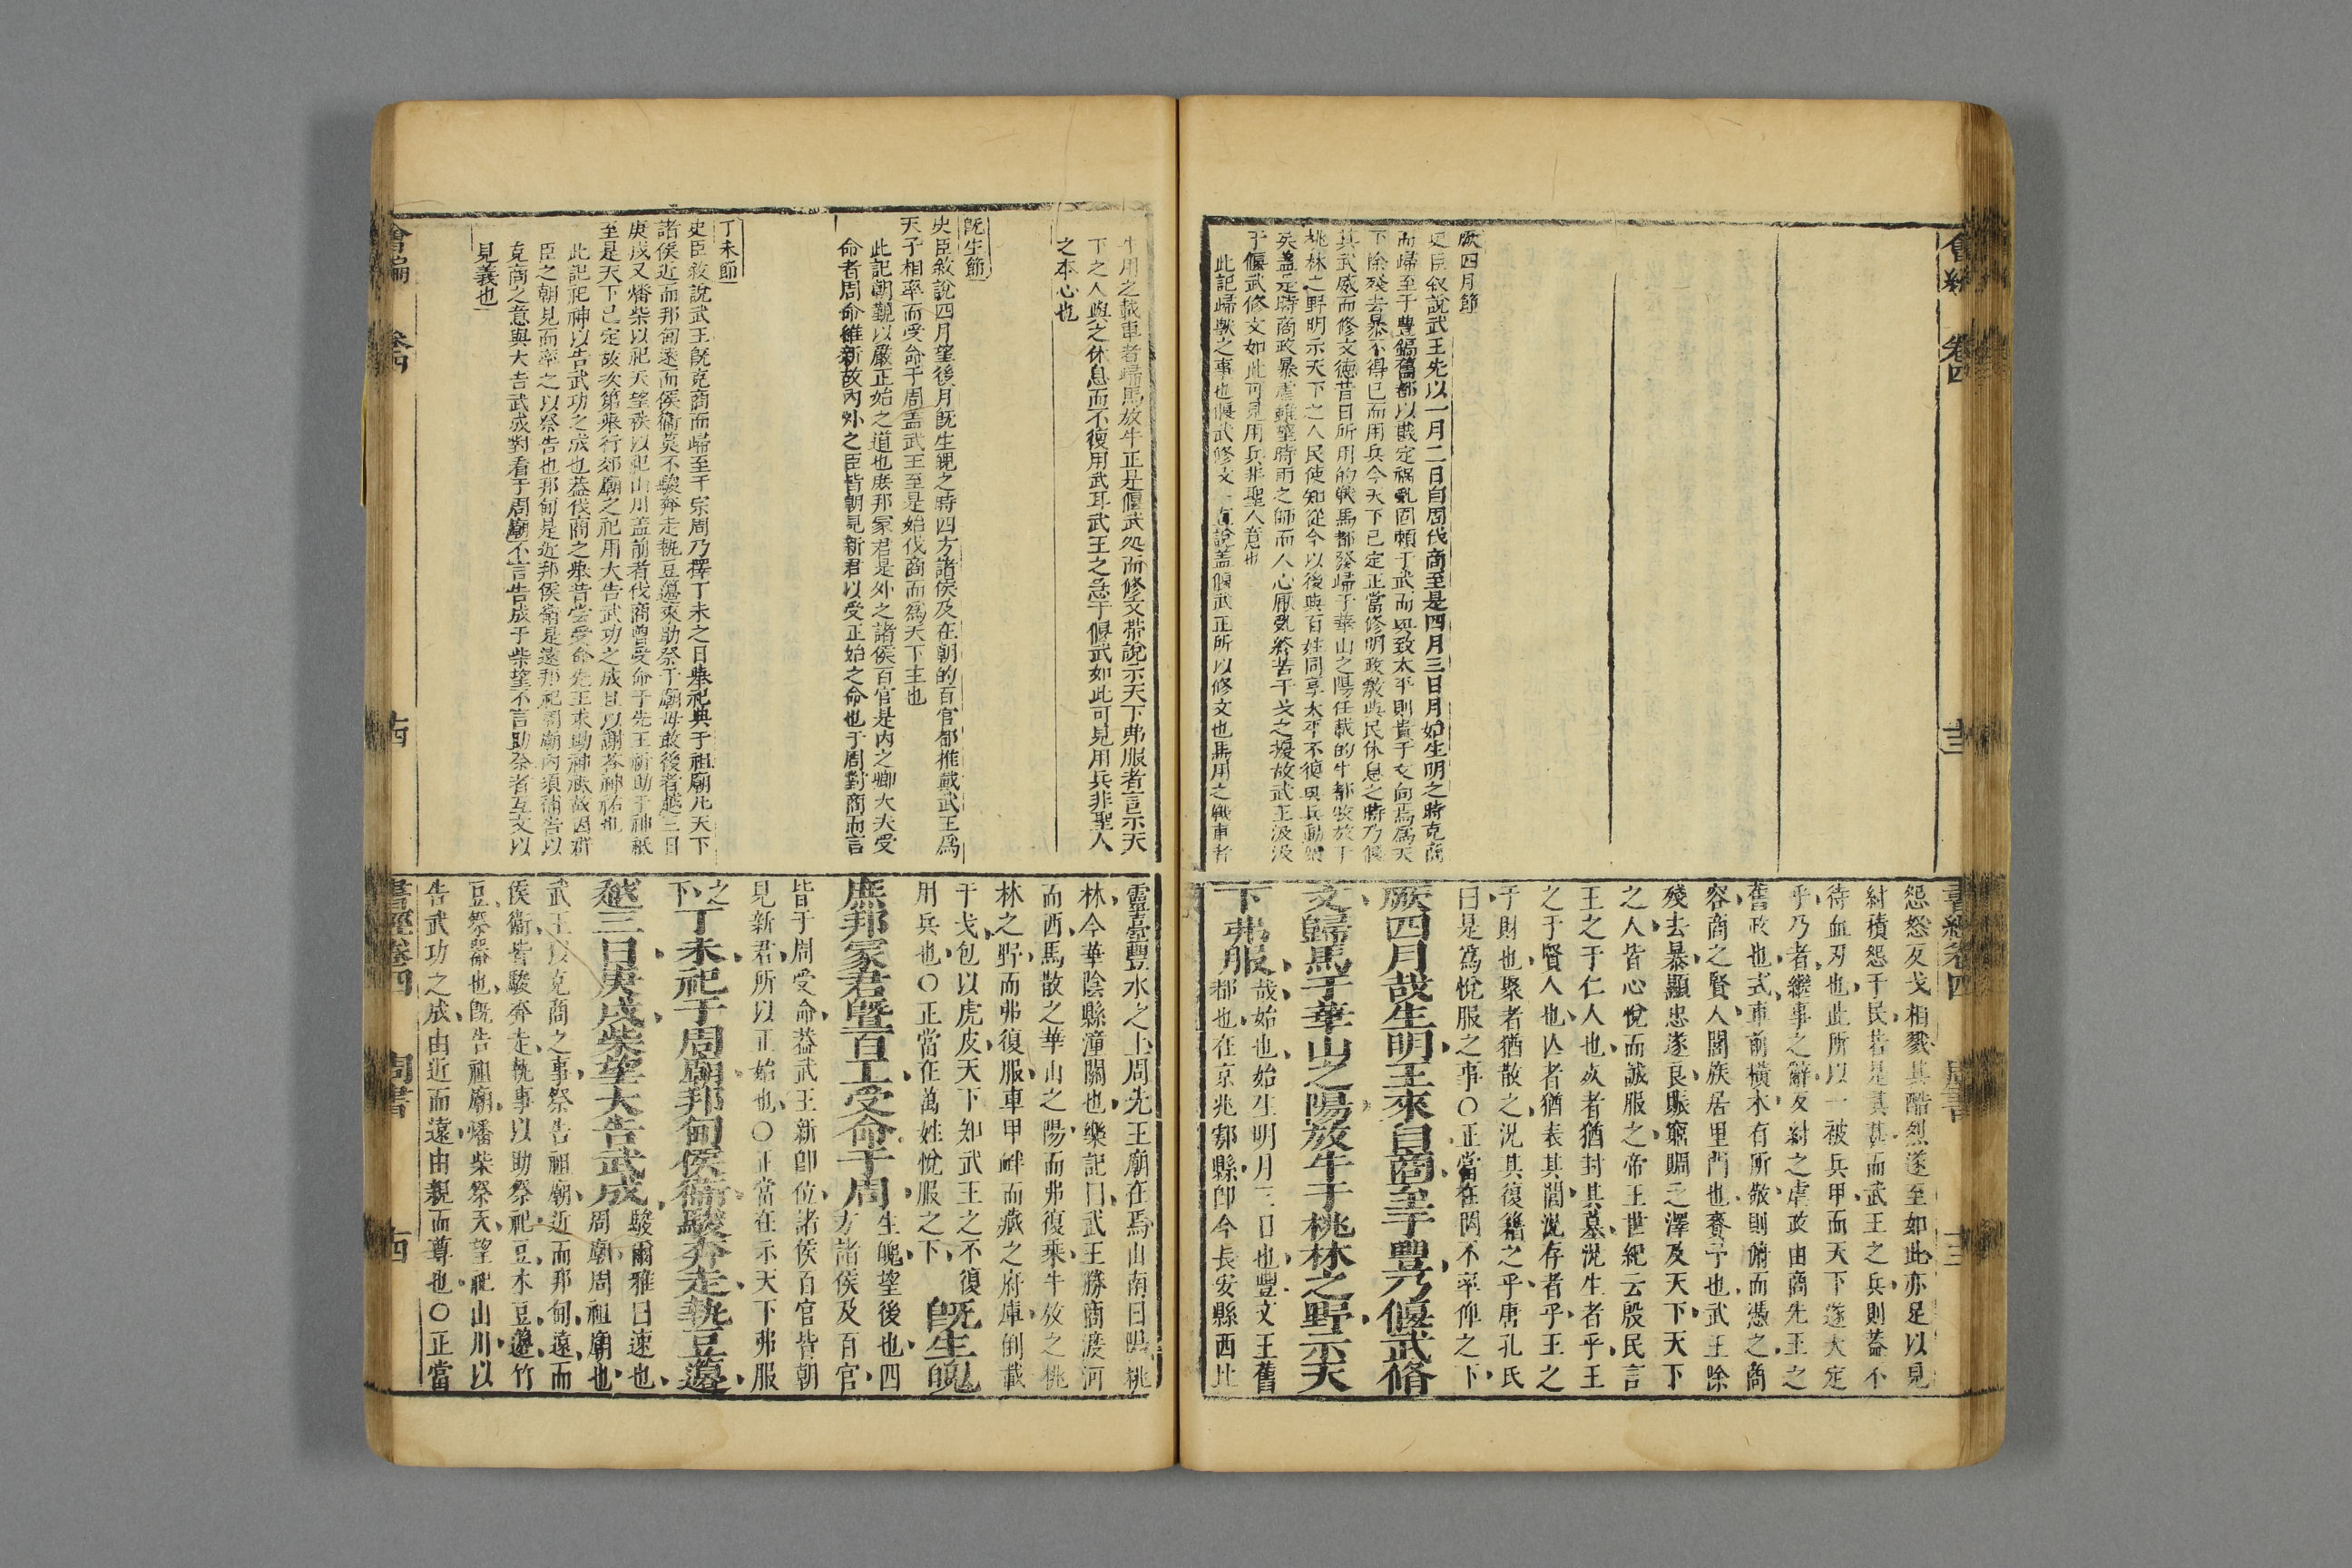 厥四月節
史臣叙說武王先以一月二日自周伐商至是四月三日月始生明之時克商
而歸至于豐鎬舊都以戡定禍亂固賴于武而興致太平則貴于文向焉為天
下除殘去暴不得已而用兵今天下已定正當修明政教與民休息之時乃偃
其武威而修文德昔日所用的戰馬都發歸于華山之陽任載的牛都牧放于
桃林之野明示天下之人民使知從今以後與百姓同享太平不復興兵動衆
矣盖是時商政暴虐雖望時雨之師而人心厭亂終苦干戈之擾故武王汲汲
于偃武修文如此可見用兵非聖人意也
此記歸獸之事也偃武修文一直說盖偃武正所以修文也馬用之戰車者
怨怒反戈相戮其酷烈遂至如此亦足以見
紂積怨于民若是其甚而武王之兵則蓋不
待血刃也此所以一被兵甲而天下遂大定
乎乃者繼事之辭反紂之虐政由商先王之
舊政也式車前橫木有所敬則俯而憑之商
容商之賢人閭族居里門也賚予也武王除
殘去暴顯忠遂良賑窮賙乏澤及天下天下
之人皆心悅而誠服之帝王世紀云殷民言
王之于仁人也死者猶封其墓況生者乎王
之于賢人也亾者猶表其閭況存者乎王之
于財也聚者猶散之況其復籍之乎唐孔氏
曰是為悅服之事○正當在罔不率仰之下
厥四月哉生明王來自商至于豐乃偃武脩
文歸馬于華山之陽放牛于桃林之野示天
下弗服哉始也始生明月三日也豐文王舊
都也在京兆鄠縣即今長安縣西北
會編 卷四
書經卷四 周書
牛用之載車者歸馬放牛正是偃武処而修文帶說示天下弗服者言示天
下之人與之休息而不復用武耳武王之急于偃武如此可見用兵非聖人
之本心也
既生節
史臣敘說四月望後月既生魄之時四方諸侯及在朝的百官都推戴武王爲
天子相率而受命于周盖武王至是始伐商而為天下主也
此記朝覲以嚴正始之道也庶邦冢君是外之諸侯百官是内之卿大夫受
命者周命維新故內外之臣皆朝見新君以受正始之命也于周對商而言
丁未節
史臣敘說武王既克商而歸至于宗周乃擇丁未之日舉祀典于祖廟凡天下
諸侯近而邦甸遠而侯衛莫不駿奔走執豆籩來助祭于廟毋敢後者越三日
庚戌又燔柴以祀天望秩以祀山川盖前者伐商曾受命于先王祈助于神祇
至是天下已定故次第舉行郊廟之祀用大告武功之成且以謝荅神祐也
此記祀神以告武功之成也葢伐商之舉昔嘗受命先王求助神祇故因群
臣之朝見而率之以祭告也邦甸是近邦侯衛是遠邦祀周廟內須補告以
克商之意與大告武成對看于周廟不言告成于柴望不言助祭者互文以
見義也
靈臺豐水之上周先王廟在焉山南曰陽桃
林今華陰縣潼關也樂記曰武王勝商渡河
而西馬散之華山之陽而弗復乘牛放之桃
林之野而弗復服車甲衅而藏之府庫倒載
干戈包以虎皮天下知武王之不復
用兵也○正當在萬姓悅服之下 既生魄
庶邦冢君曁百工受命于周生魄望後也四
方諸侯及百官
皆于周受命葢武王新卽位諸侯百官皆朝
見新君所以正始也○正當在示天下弗服
之
下 丁未祀于周廟邦甸侯衞駿奔走執豆籩
越三日庚戌柴望大告武成駿爾雅曰速也
周廟周祖廟也
武王以克商之事祭告祖廟近而邦甸遠而
侯衞皆駿奔走執事以助祭祀豆木豆籩竹
豆祭器也既告祖廟燔柴祭天望祀山川以
告武功之成由近而遠由親而尊也○正當
會編 卷四 十四
書經卷四 周書 十四